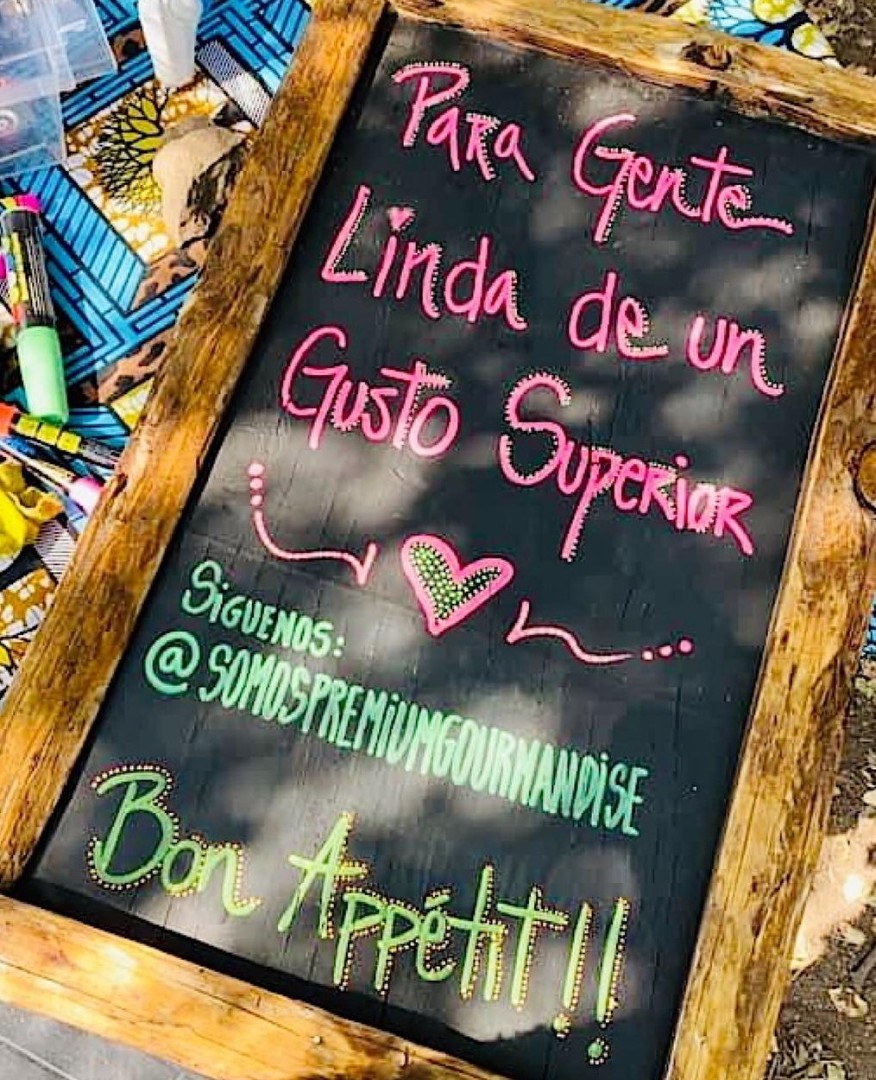 Para Gente
Linda de un
Gusto Superior
SiGUENOS:
@SOMOSPREMiUMGOURMANDiSE
Bon Appétit!!